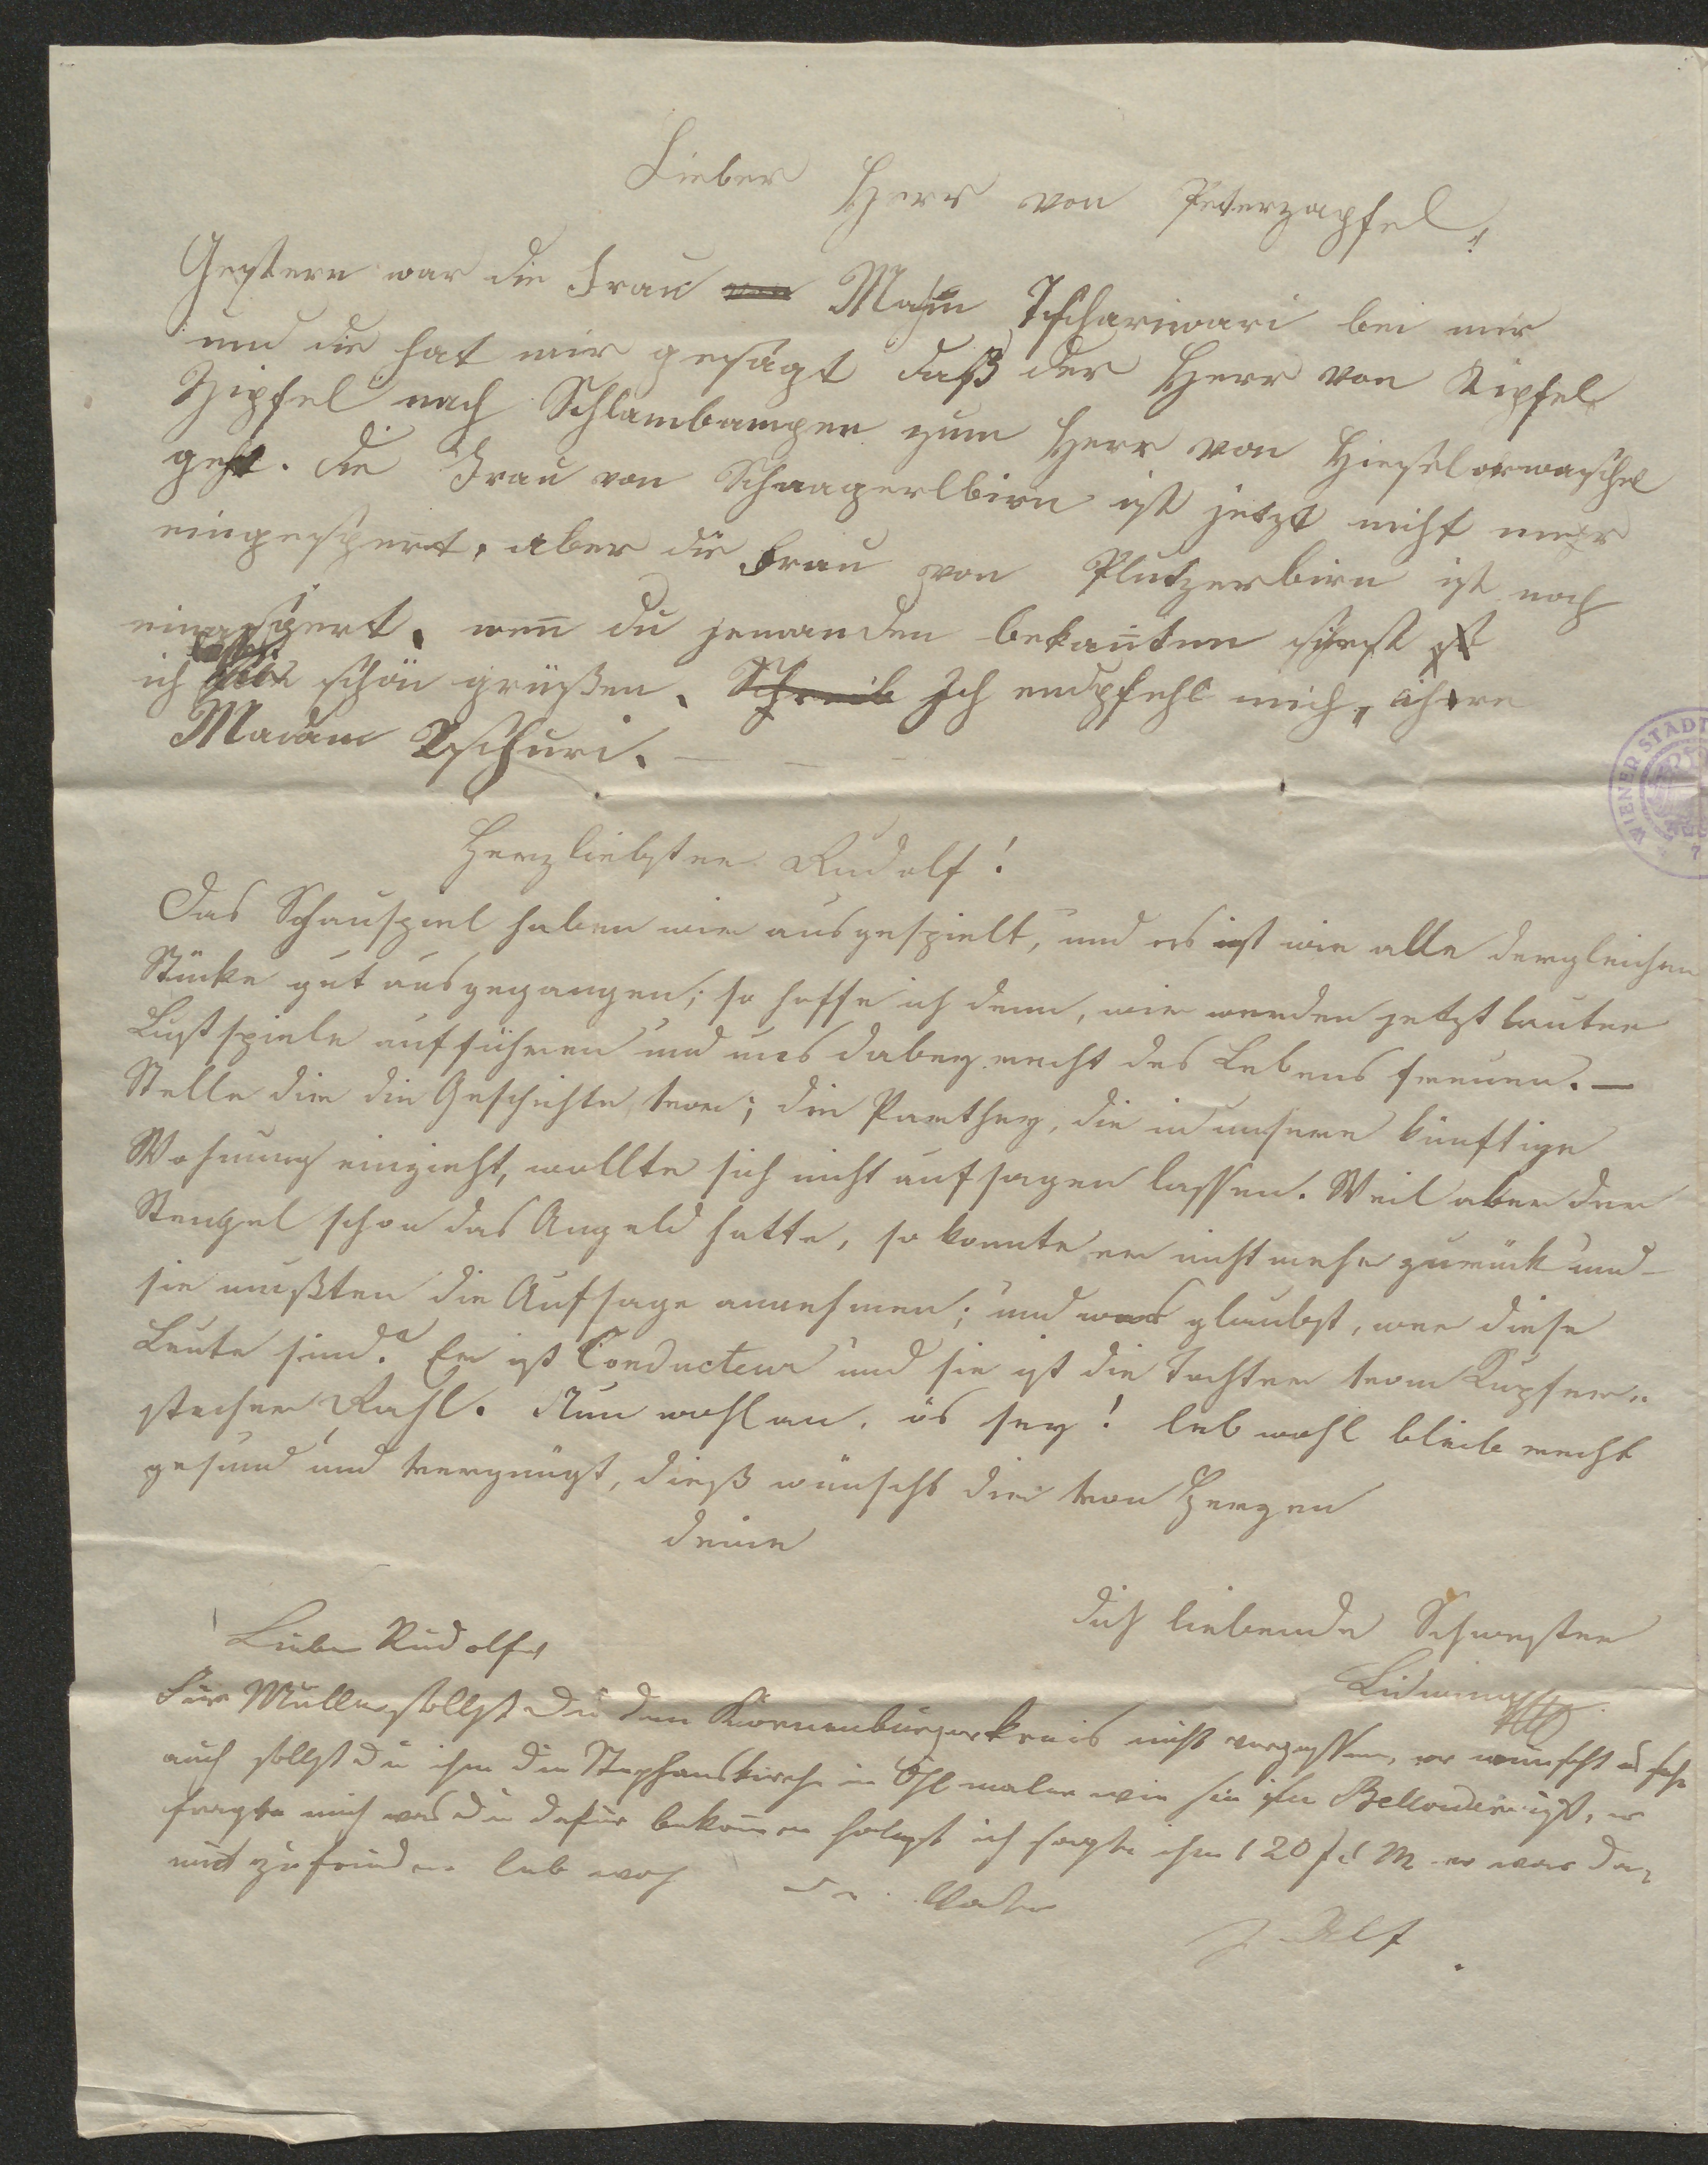 Lieber Herr von Peterzapfel!
Gestern war die Frau von Mahm Tschariwari bei mir
und die hat mir gesagt daß der Herr von Kipfel
Zipfel nach Schlambamper zum Herr von Hieselorwaschel
geht. die Frau von Schnagerlbirn ist jetzt nicht mehr
eingespert, aber die Frau von Plutzerbirn ist noch
eingespert. wen̄ du jemanden bekan̄ten siehst
ich lasse schön grüßen. Schreib Ich empfehl mich, ihre
Madam Tschuri.
Herzliebster Rudolf!
Das Schauspiel haben wir ausgespielt, und es ist wie alle dergleichen
Stücke gut ausgegangen; so hoffe ich denn, wir werden jetzt lauter
Lustspiele aufführen und uns dabey recht des Lebens freuen. —
Stelle dir die Geschichte vor; die Parthey, die in unsere künftige
Wohnung einzieht, wollte sich nicht aufsagen lassen. Weil aber der
Stengel schon das Angeld hatte, so konnte er nicht mehr zurück und
sie mußten die Aufsage annehmen; und was glaubst, wer diese
Leute sind? Er ist Conducteur und sie ist die Tochter vom Kupfer„
stecher Rahl. Nun wohl an, es sey! leb wohl bleib recht
gesund und vergnügt, dieß wünscht dir von Herzen
deine
dich liebende Schwester
Ludwina
Lieber Rudolf,
Für Müller sollst du den Korneuburgerkreis nicht vergessen, er wünscht es sehr
auch sollst du ihm die Stephanskirche in Öhl malen wie sie im Belvedere ist, er
fragte mich was du dafür bekom̄en habest ich sagte ihm 120 f C M er war da„
mit zufrieden leb wohl dein Vater
J Alt
WIENER STADT